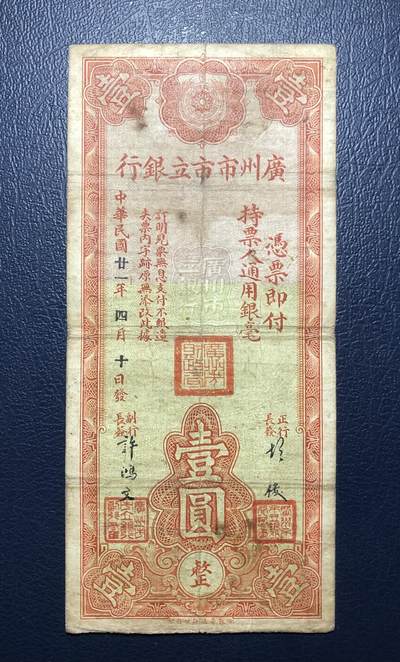 壹
壹
廣州市市立銀行
憑票即付
持票人通用銀毫
訂明見票無息支付不報遺
失票內字跡原無添改此據
中華民國廿一年四月十日發
正行長簽
壹圓
整
副行長簽
許鴻文
壹
壹